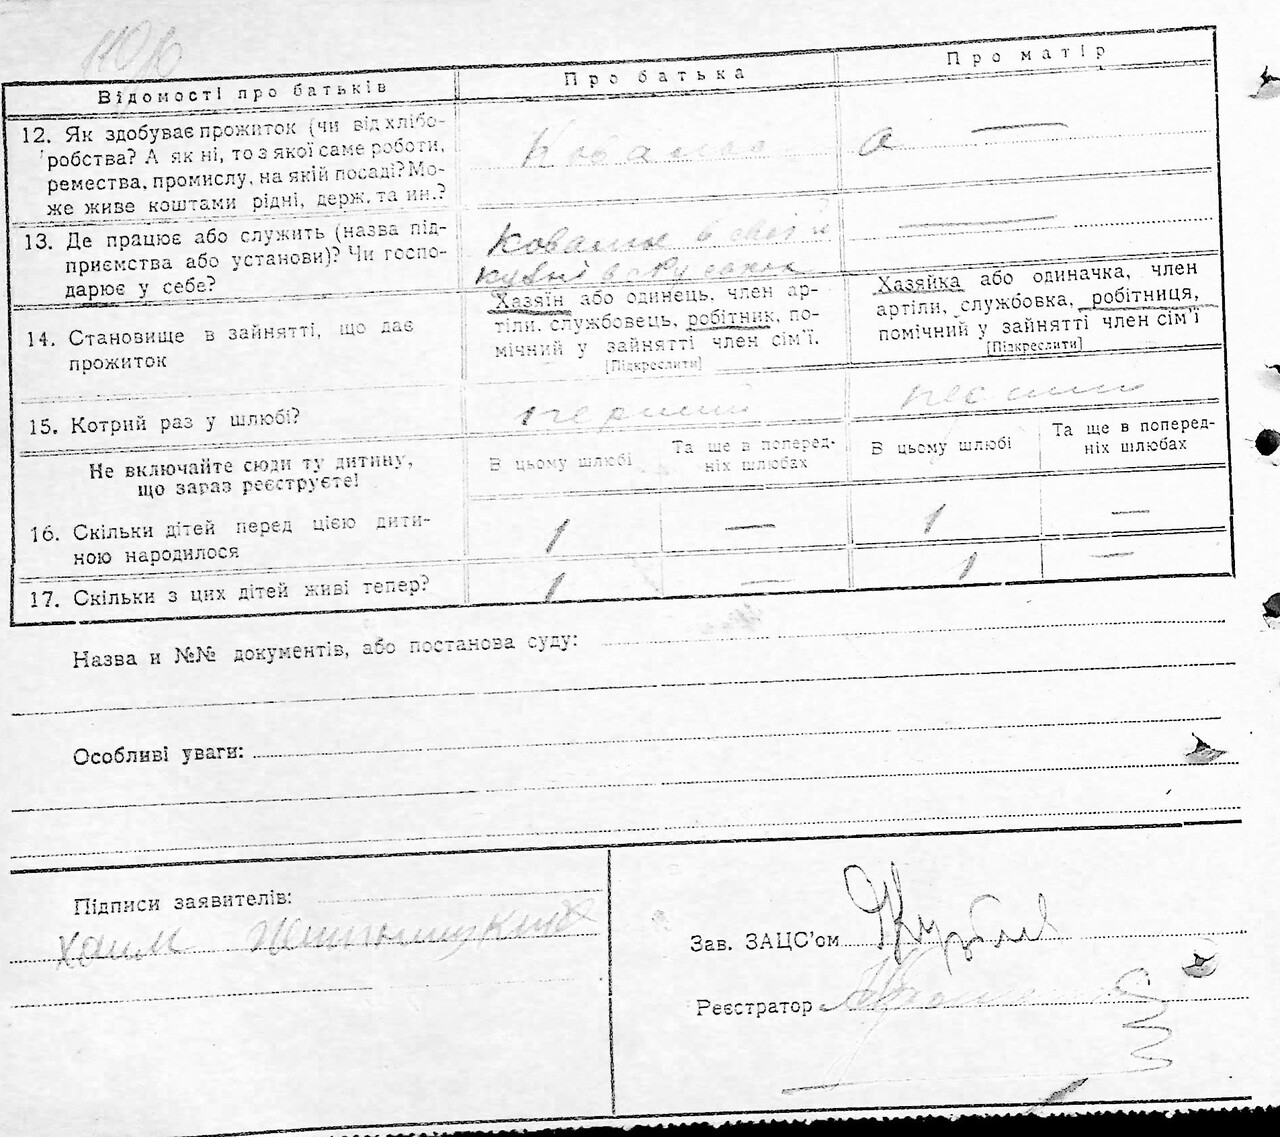 Відомості про батьків
Про батька
Про матір
12. Як здобуває прожиток (чи від хлібо-
робства? А як ні, то з якої саме роботи,
ремества, промислу, на якій посаді? Мо-
же живе коштами рідні, держ. та ин.?
13. Де працює або служить (назва під-
приємства або установи)? Чи госпо-
дарює у себе?
Коваль в своїй
кузні
14. Становище в зайнятті, що дає
прожиток
Хазяїн або одинець, член ар-
тіли, службовець, робітник, по-
мічний у зайнятті член сім'ї.
[Підкреслити]
Хазяйка або одиначка, член
артіли, службовка, робітниця,
помічний у зайнятті член сім'ї
[Підкреслити]
15. Котрий раз у шлюбі?
перший
Не включайте сюди ту дитину,
що зараз реєструєте!
В цьому шлюбі
Та ще в поперед-
ніх шлюбах
В цьому шлюбі
Та ще в поперед-
ніх шлюбах
16. Скільки дітей перед цією дити-
ною народилося
1 — 1 —
17. Скільки з цих дітей живі тепер?
1 — 1 —
Назва и №№ документів, або постанова суду:
Особливі уваги:
Підписи заявителів:
Хаим
Зав. ЗАЦС'ом
Реєстратор